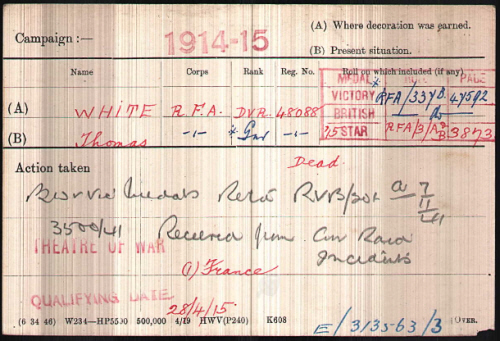 Campaign :— 1914-15 (A) Where decoration was earned.
(B) Present situation.
Name Corps Rank Reg. No. Roll on which included (if any)
MEDAL ROLL PAGE
(A) WHITE R.F.A. DVR. 48088 VICTORY RFA/337B. 47592
(B) Thomas -"- * Gnr -"- BRITISH -do-
15 STAR RFA/3/A2B 3873
Action taken Dead.
Medals Retd RVB/301
3500/41 Received from Air Raid
Incidents
THEATRE OF WAR
(1) France
QUALIFYING DATE 28/4/15
(6 34 46) W234—HP5590 500,000 4/19 HWV(P240) K608
E/313563/3 [OVER.